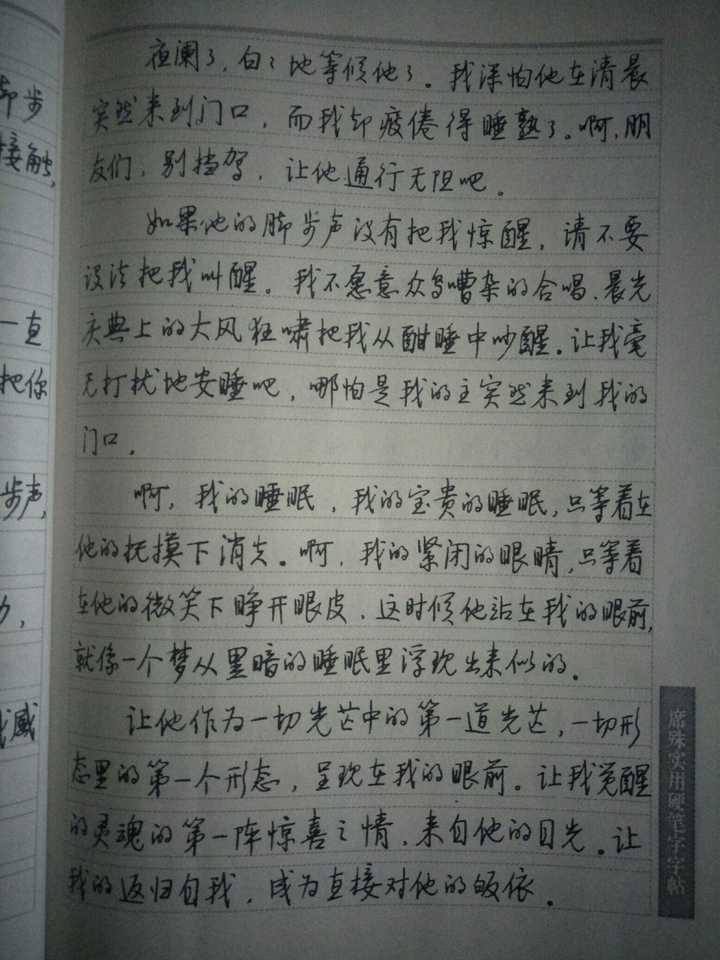 却步
接触,
一直
把你
步声,
夜阑了，白白地等候他了。我深怕他在清晨
突然来到门口，而我却疲倦得睡熟了。啊，朋
友们，别挡驾，让他通行无阻吧。
如果他的脚步声没有把我惊醒，请不要
设法把我叫醒。我不愿意众鸟嘈杂的合唱、晨光
庆典上的大风狂啸把我从酣睡中吵醒。让我毫
无打扰地安睡吧，哪怕是我的主突然来到我的
门口。
啊，我的睡眠，我的宝贵的睡眠，只等着在
他的抚摸下消失。啊，我的紧闭的眼睛，只等着
在他的微笑下睁开眼皮，这时候他站在我的眼前，
就像一个梦从黑暗的睡眠里浮现出来似的。
让他作为一切光芒中的第一道光芒，一切形
态里的第一个形态，呈现在我的眼前。让我觉醒
的灵魂的第一阵惊喜之情，来自他的目光。让
我的返归自我，成为直接对他的皈依。
席殊实用硬笔字字帖